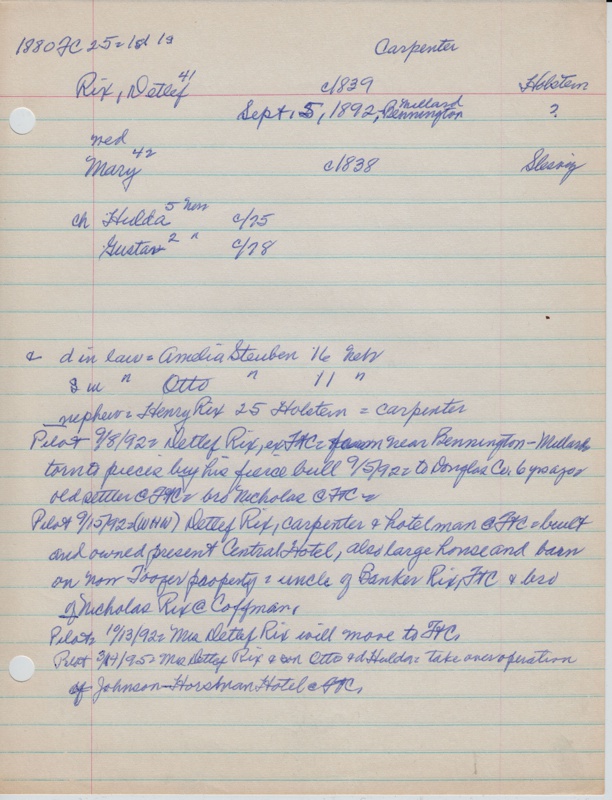 1880 FC 25 = 1d 19
Carpenter
Rix, Detlef 41 c/1839 Holstein
Sept. 5, 1892, Millard Bennington ?
wed
Mary 42 c/1838 Slesvig
ch Hulda 5 Neb c/75
Gustav 2 " c/78
& d in law = Amelia Steuben 16 Neb
s in " Otto " 11 "
nephew = Henry Rix 25 Holstein = carpenter
Pilot 9/8/92 = Detlef Rix, ex FtC = farm near Bennington - Millard
torn to pieces by his fierce bull 9/5/92 = to Douglas Co. 6 yrs ago =
old settler @ FtC = bro Nicholas @ FtC =
Pilot 9/15/92 = (WHW) Detlef Rix, carpenter & hotel man @ FtC = built
and owned present Central Hotel, also large house and barn
on now Toozer property = uncle of Banker Rix, FtC & bro
of Nicholas Rix @ Coffman.
Pilot = 10/13/92 = Mrs Detlef Rix will move to FtC.
Pilot 3/ /95 = Mrs Detlef Rix & son Otto & d Hulda = take over operation
of Johnson-Horstman Hotel @ FtC.